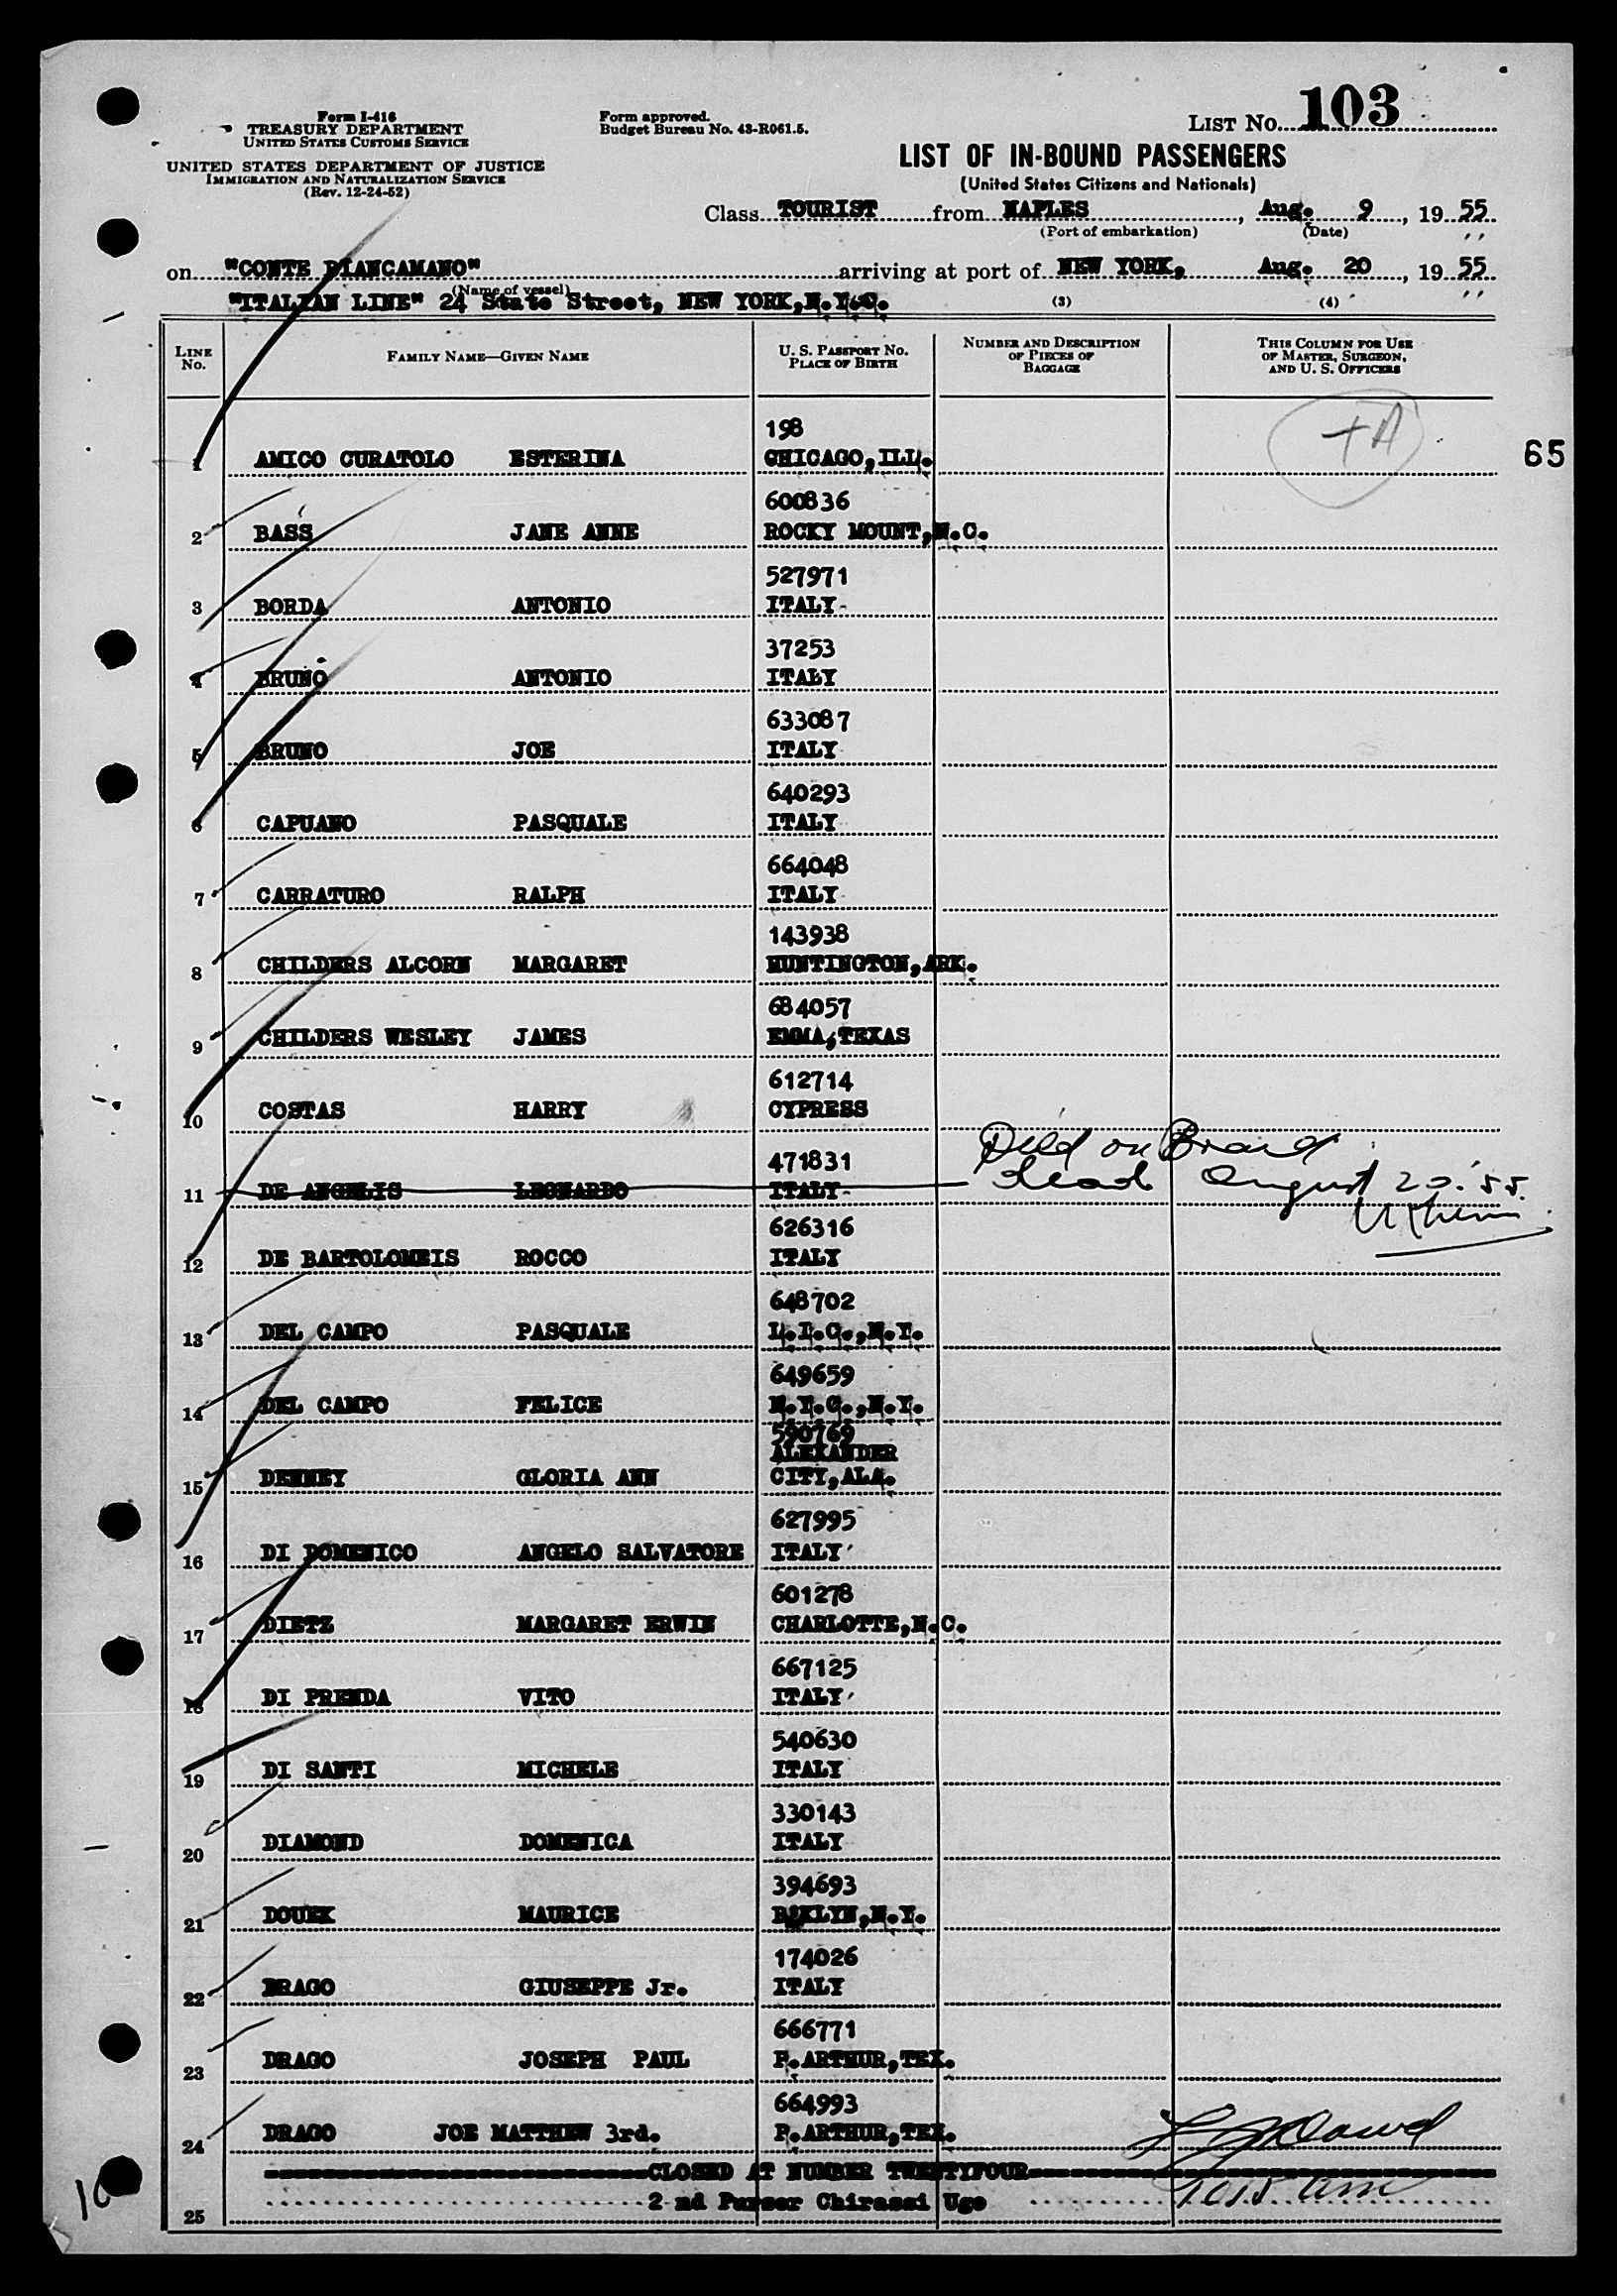 Form I-416
TREASURY DEPARTMENT
UNITED STATES CUSTOMS SERVICE
UNITED STATES DEPARTMENT OF JUSTICE
IMMIGRATION AND NATURALIZATION SERVICE
(Rev. 12-24-52)
Form approved.
Budget Bureau No. 43-R061.5.
LIST No. 103
LIST OF IN-BOUND PASSENGERS
(United States Citizens and Nationals)
Class TOURIST from NAPLES, Aug. 9, 19 55
(Port of embarkation) (Date)
on "CONTE BIANCAMANO" arriving at port of NEW YORK, Aug. 20, 19 55
(Name of vessel) (3) (4)
"ITALIAN LINE" 24 State Street, NEW YORK, N.Y.C.
LINE No. FAMILY NAME—GIVEN NAME U. S. PASSPORT No. PLACE OF BIRTH NUMBER AND DESCRIPTION OF PIECES OF BAGGAGE THIS COLUMN FOR USE OF MASTER, SURGEON, AND U. S. OFFICERS
198
1 AMICO CURATOLO ESTERINA CHICAGO, ILL. 65
600836
2 BASS JANE ANNE ROCKY MOUNT, N.C.
527971
3 BORDA ANTONIO ITALY
37253
4 BRUNO ANTONIO ITALY
633087
5 BRUNO JOE ITALY
640293
6 CAPUANO PASQUALE ITALY
664048
7 CARRATURO RALPH ITALY
143938
8 CHILDERS ALCORN MARGARET HUNTINGTON, ARK.
684057
9 CHILDERS WESLEY JAMES EMMA, TEXAS
612714
10 COSTAS HARRY CYPRESS
Died on Board
471831
11 DE ANGELIS LEONARDO ITALY dead August 20 '55.
626316
12 DE BARTOLOMEIS ROCCO ITALY
648702
13 DEL CAMPO PASQUALE L.I.C., N.Y.
649659
14 DEL CAMPO FELICE N.Y.C., N.Y.
590769
ALEXANDER
15 DENNEY GLORIA ANN CITY, ALA.
627995
16 DI DOMENICO ANGELO SALVATORE ITALY
601278
17 DIETZ MARGARET ERWIN CHARLOTTE, N.C.
667125
18 DI PRENDA VITO ITALY
540630
19 DI SANTI MICHELE ITALY
330143
20 DIAMOND DOMENICA ITALY
394693
21 DOUEK MAURICE BKLYN, N.Y.
174026
22 DRAGO GIUSEPPE Jr. ITALY
666771
23 DRAGO JOSEPH PAUL P. ARTHUR, TEX.
664993
24 DRAGO JOE MATTHEW 3rd. P. ARTHUR, TEX.
CLOSED AT NUMBER TWENTYFOUR
2 nd Purser Chirassi Ugo
25